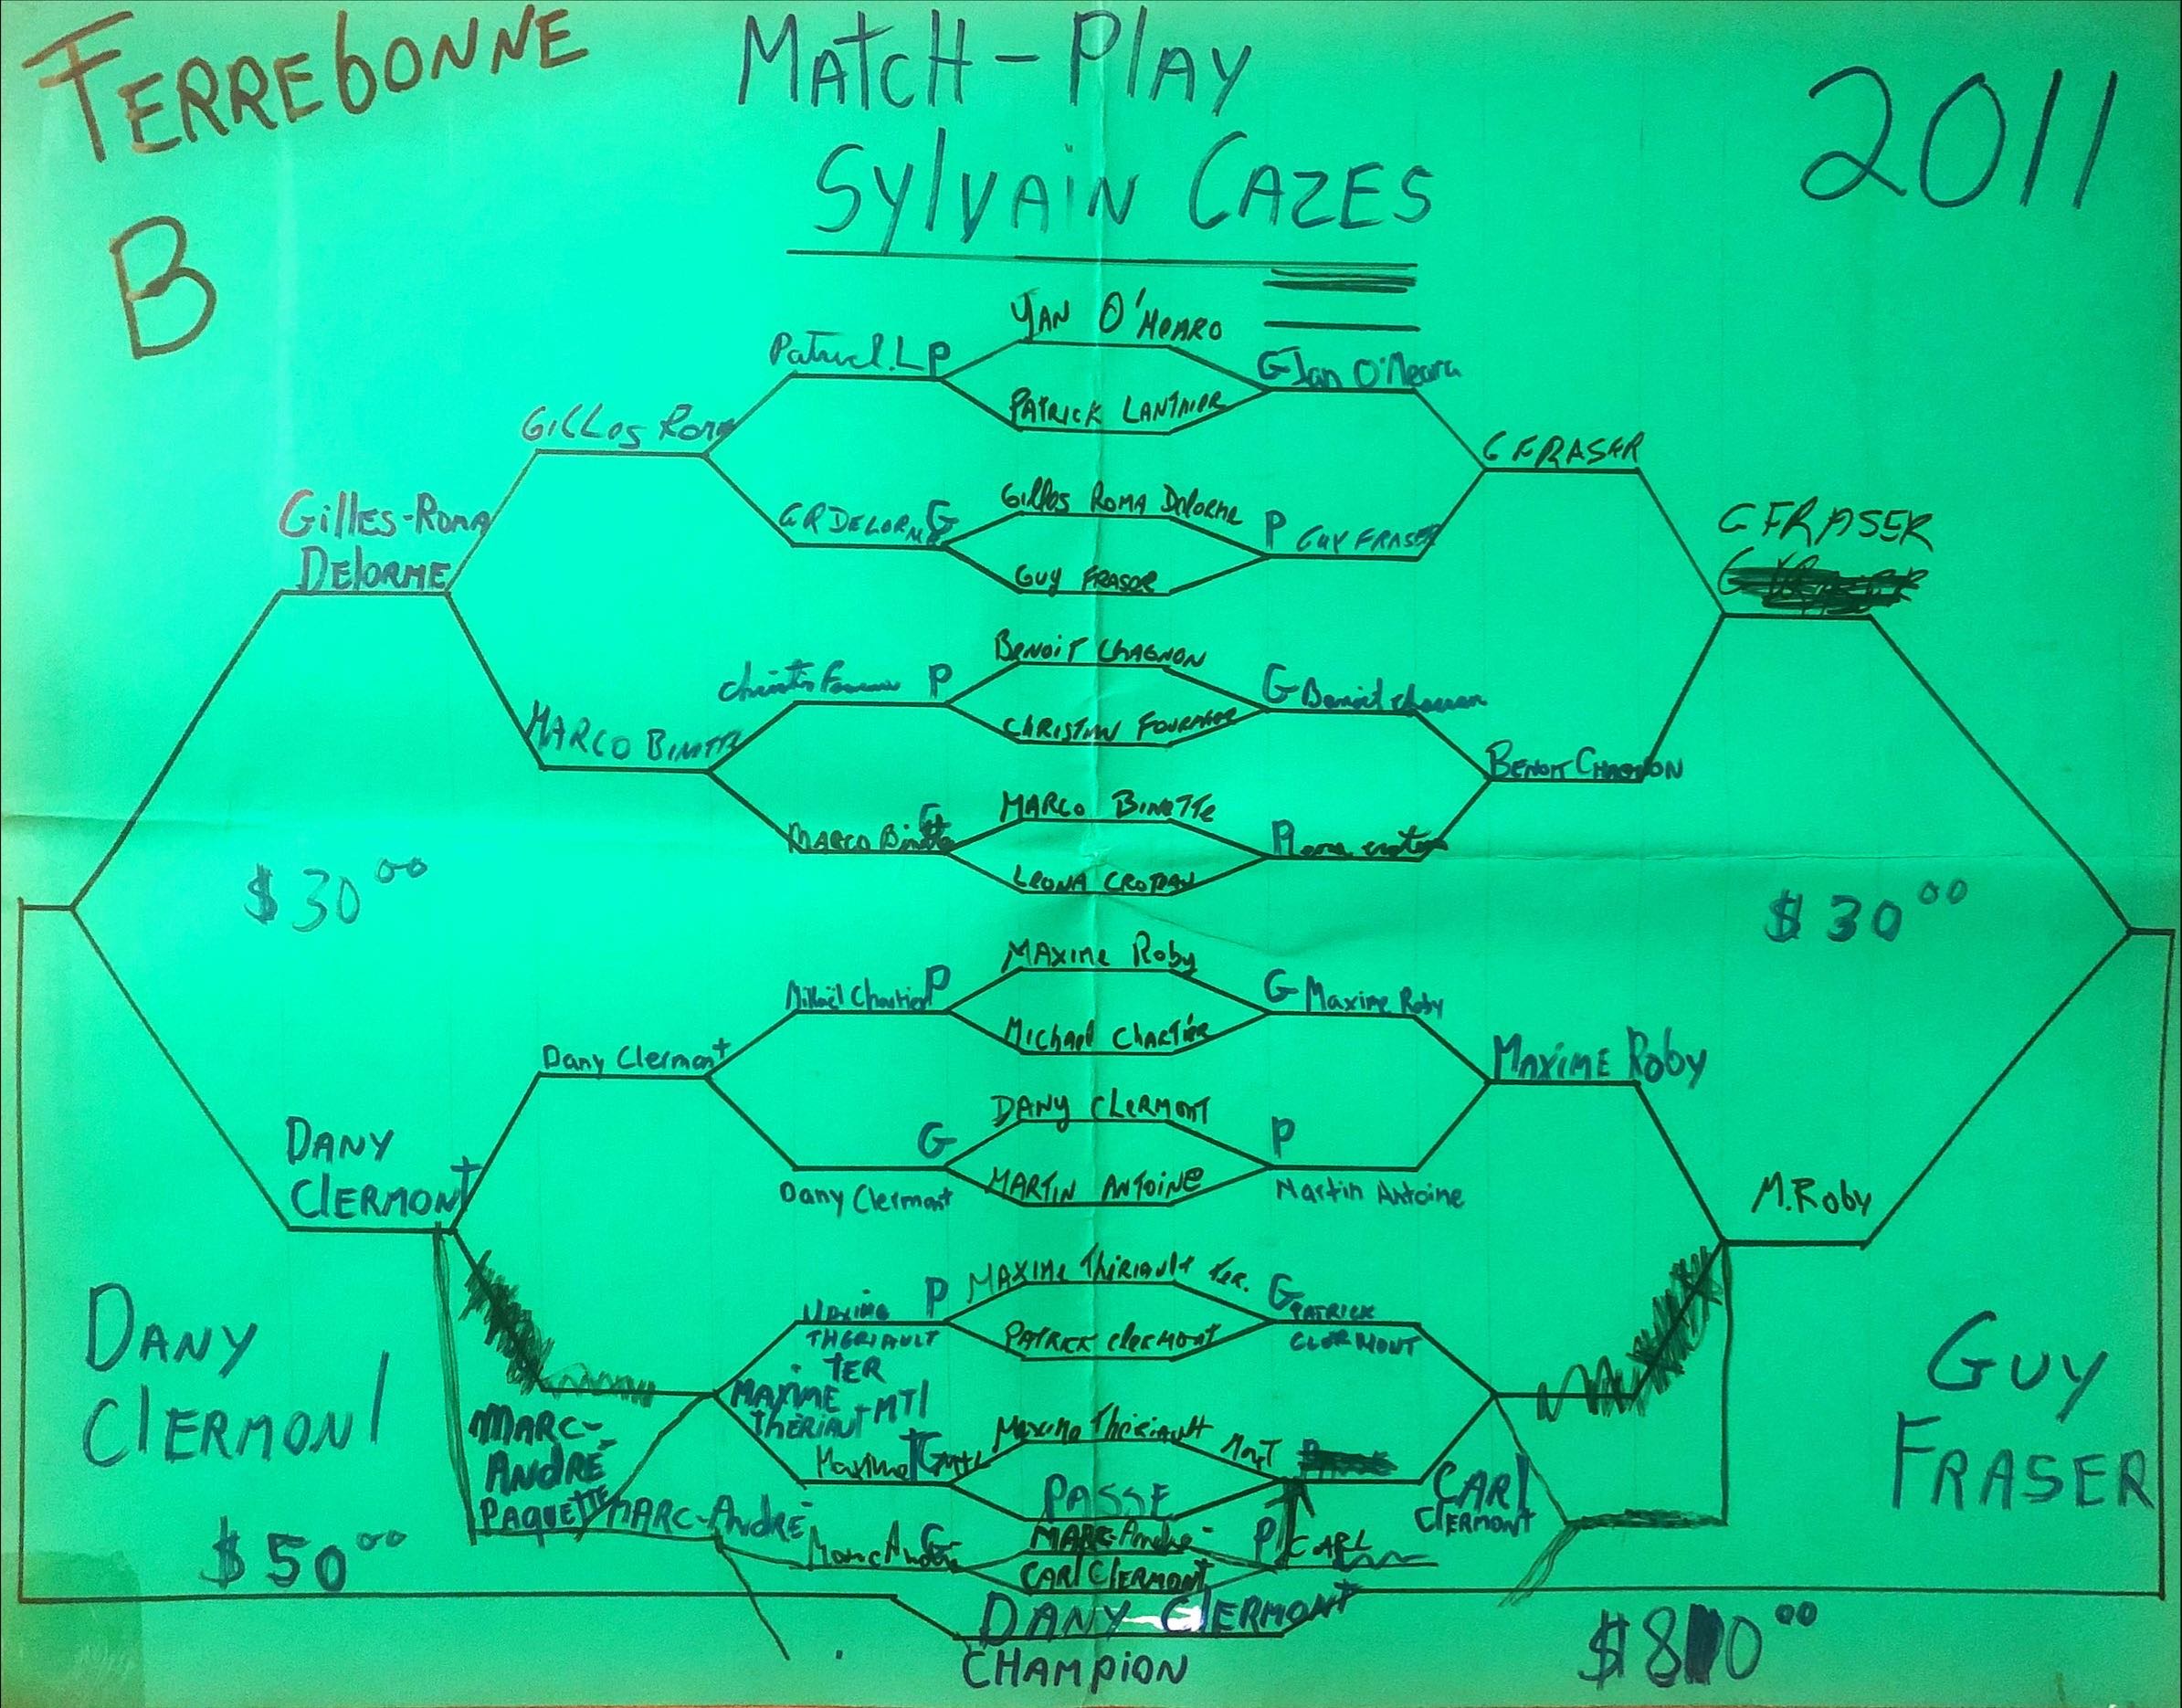 FERREbONNE
MatcH-PlAY
2011
B
SylVAiN CAZES
YAN O'MEARO
Patrick.L P
G Ian O'Meara
PATRICK LANTHIER
GiLLes Roma
G FRASER
Gilles Roma Delorme
Gilles-Roma
DElORME
G R DELORME G
P GUY FRASER
G FRASER
GUY FRASER
BENOIT CHAGNON
P
G Benoit
CHRISTIAN FOURNIER
MARCO BINETTE
BENOIT CHAGNON
MARCO BINETTE
MARCO Binette G
P
LEONA CROTEAU
$30 00
$30 00
MAXIME Roby
Mikaël Chartier P
G Maxime Roby
MICHAEL CHARTIER
Dany Clermont
MAXIME Roby
DANY CLERMONT
G
P
DANY
CLERMONT
Dany Clermont
MARTIN ANTOINE
Martin Antoine
M.Roby
MAXIME THÉRIAULT TER.
MAXIME
THERIAULT
TER
P
G PATRICK
CLERMONT
PATRICK CLERMONT
DANY
CLERMONT
MAXIME
THERIAULT MTL
GUY
FRASER
MARC-
ANDRÉ
PAQUETTE
Maxime Thériault MNT
Maxime T G MTL
PASSE
CARL
CLERMONT
MARC-ANDRÉ
Marc André G
MARC-André
P CARL
CARL CLERMONT
$50 00
DANY CLERMONT
CHAMPiON
$80 00